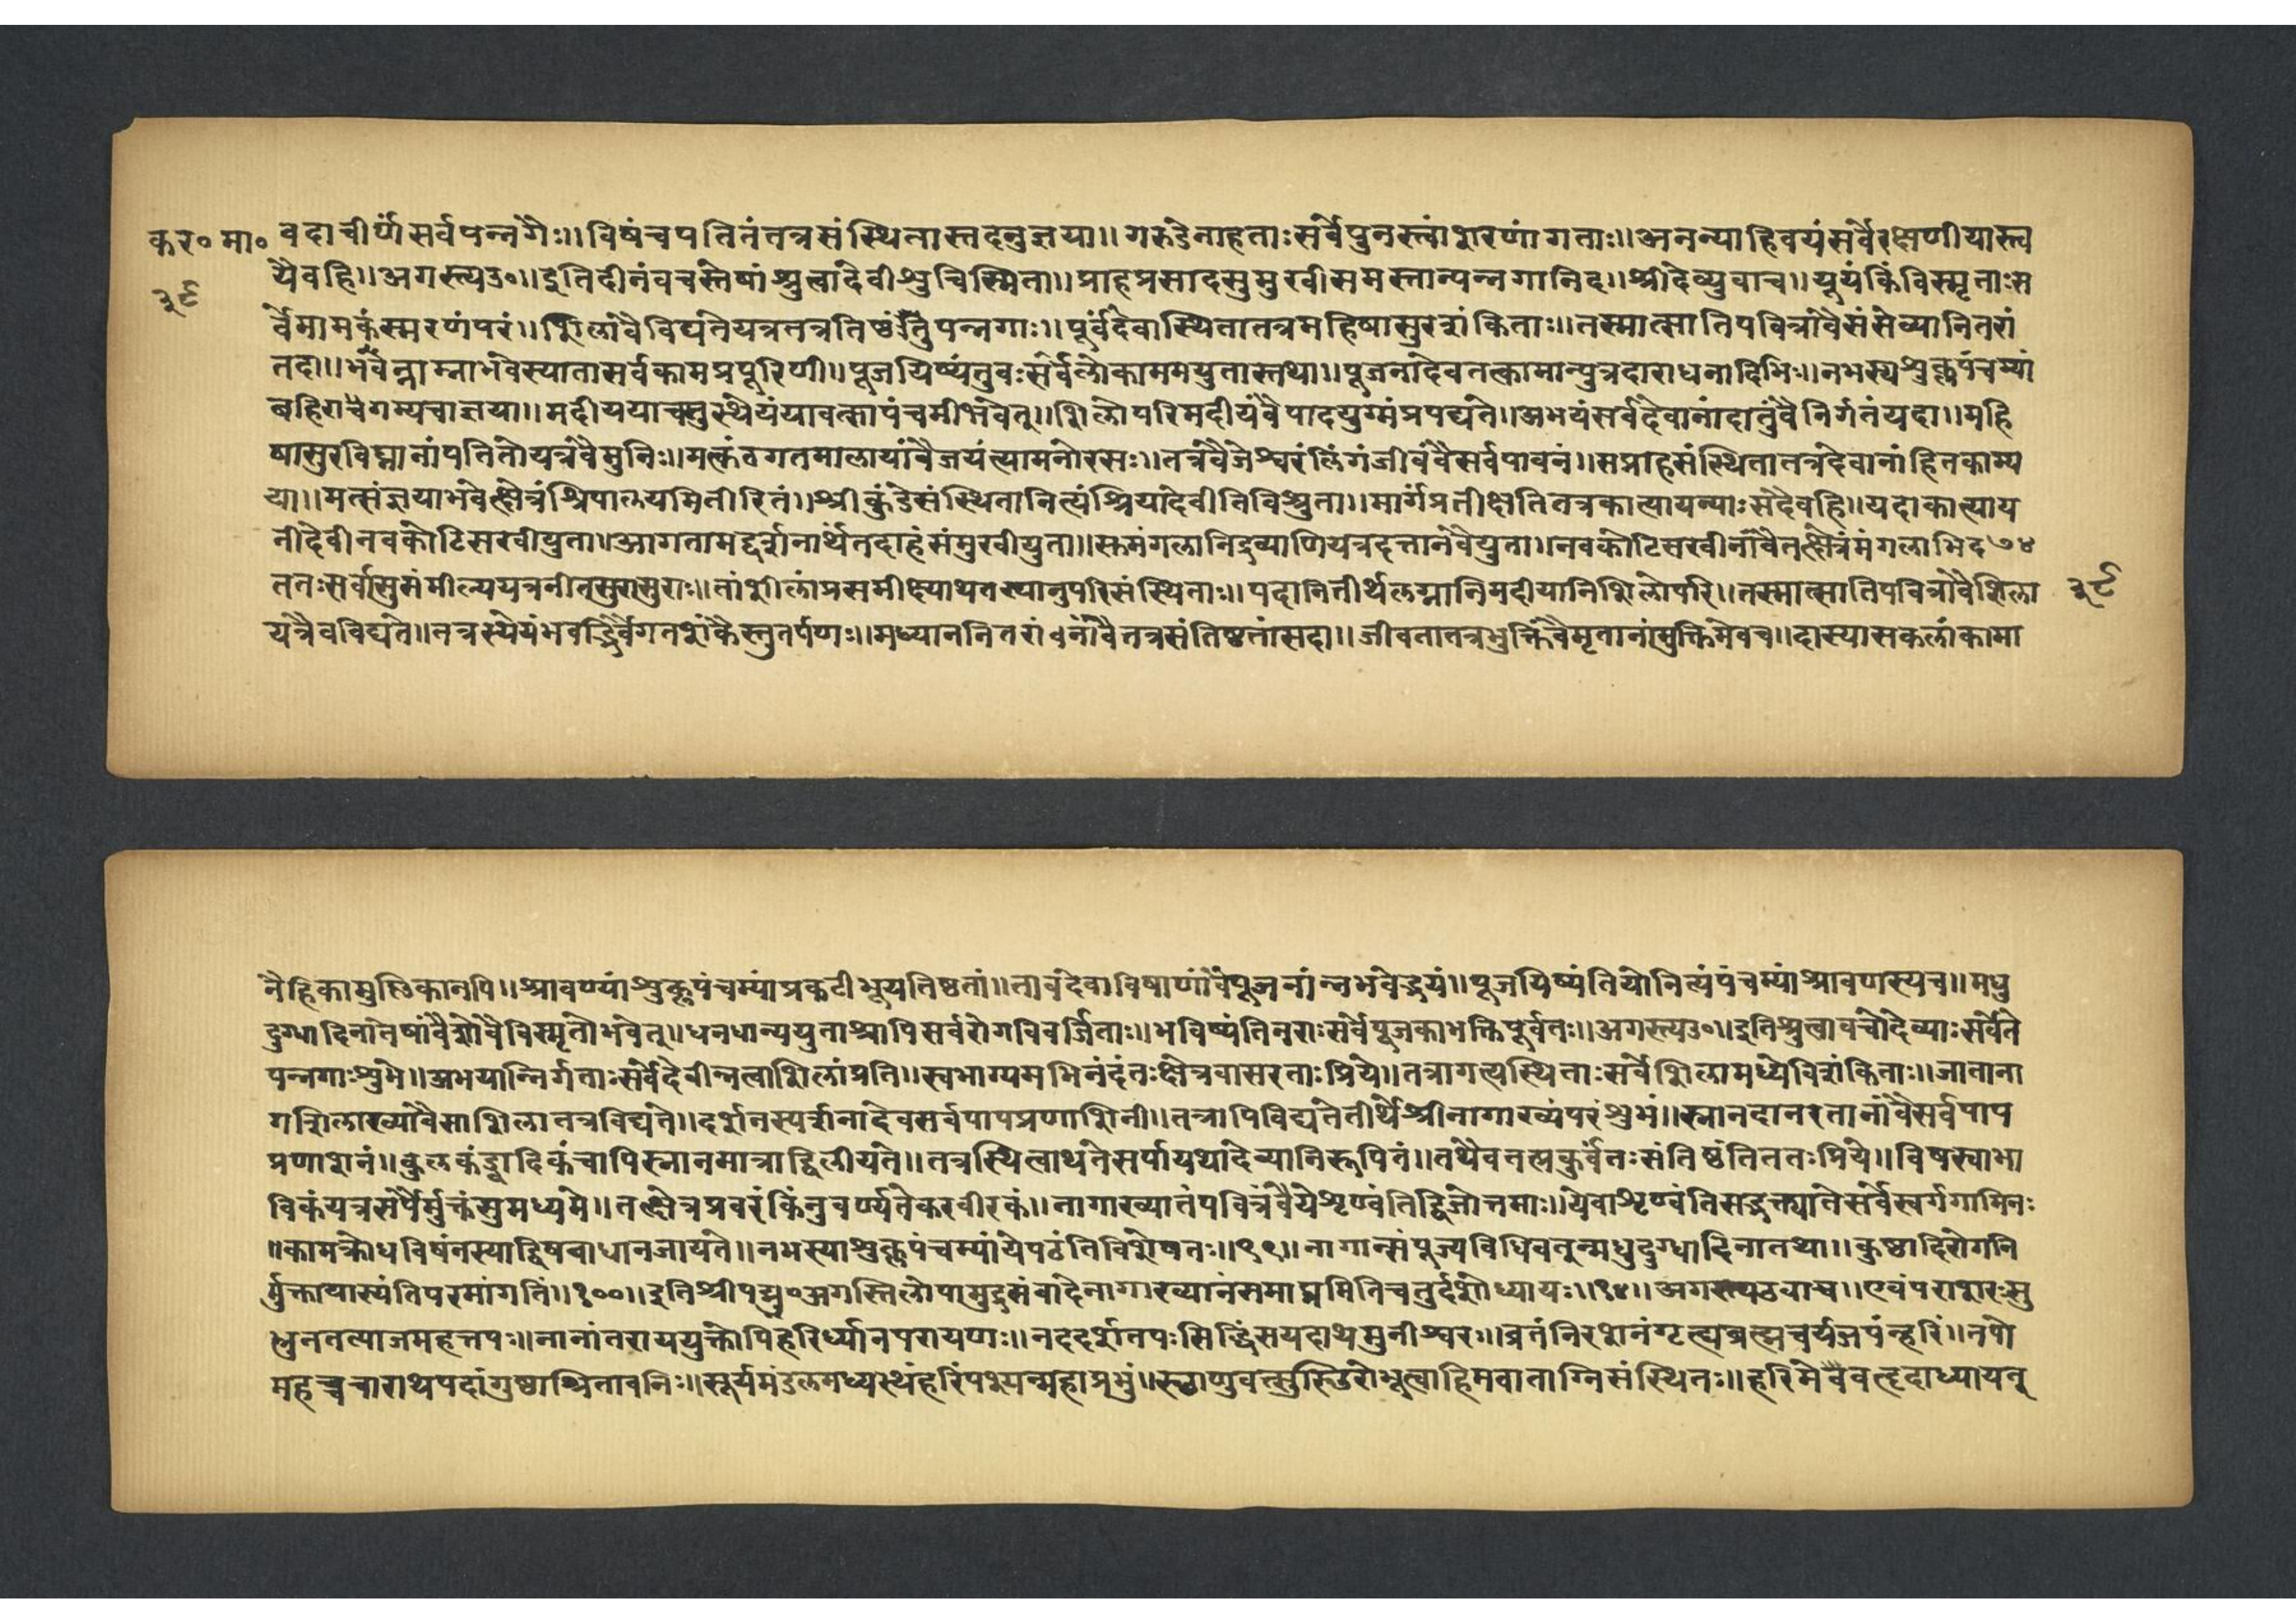 कर॰ मा॰
३९
वदाचीर्णंसर्वपन्नगैः॥विषंचपतितंतत्रसंस्थितास्तदनुज्ञया॥गरुडेनाहताःसर्वेपुनस्त्वांशरणंगताः॥अनन्याहिवयंसर्वेरक्षणीयास्त्व
यैवहि॥अगस्त्यउ॰॥इतिदीनंवचस्तेषांश्रुत्वादेवीशुचिस्मिता॥प्राहप्रसादसुमुखीसमस्तान्पन्नगानिद॥श्रीदेव्युवाच॥यूयंकिंविस्मृताःस
र्वेमामकंस्मरणंपरं॥शिलावैविद्यतेयत्रतत्रतिष्ठंतुपन्नगाः॥पूर्वंदेवास्थितातत्रमहिषासुरशंकिताः॥तस्मात्सातिपवित्रावैसंसेव्यानितरां
तदा॥भवेन्नाम्नाभवेस्यातासर्वकामप्रपूरिणी॥पूजयिष्यंतुवःसर्वेलोकाममयुतास्तथा॥पूजनादेवतत्कामान्पुत्रदाराधनादिभिः॥नभस्यशुक्लपंचम्यां
बहिरागम्यचाज्ञया॥मदीययाचसुस्थेयंयावत्सापंचमीभवेत्॥शिलोपरिमदीयंवैपादयुग्मंप्रपद्यते॥अभयंसर्वदेवानांदातुंवैनिर्गतंयदा॥महि
षासुरविघ्नानांपतितोयत्रवैमुनिः॥मत्कंठगतमालायांवैजयंत्यामनोरसः॥तत्रवैजेश्वरंलिंगंजीवंवैसर्वपावनं॥सप्राहसंस्थितातत्रदेवानांहितकाम्य
या॥मत्संज्ञयाभवेत्क्षेत्रंश्रिपालयमितीरितं॥श्रीकुंडेसंस्थितानित्यंश्रियादेवीतिविश्रुता॥मार्गप्रतीक्षातितत्रकात्यायन्याःसदैवहि॥यदाकात्याय
नीदेवीनवकोटिसखीयुता॥आगतामद्दर्शनार्थंतदाहंसंमुखीयुता॥समंगलानिद्रव्याणियत्रदत्तानवैयुता॥नवकोटिसखीनांवैतत्क्षेत्रंमंगलाभिद७४
ततःसर्वासुसंमील्ययत्रनीत्सुरासुराः॥तांशीलांप्रसमीक्ष्याथतस्यानुपरिसंस्थिताः॥पदानितीर्थलग्नानिमदीयानिशिलोपरि॥तस्मात्सातिपवित्रावैशिला
यत्रैवविद्यते॥तत्रस्थेयंभवद्भिर्वैगतशंकैस्तुतर्पणः॥मध्यानंनितरांनांवैतत्रसंतिष्ठतांसदा॥जीवतातत्रभुक्तिंवैमृतानांमुक्तिमेवच॥दास्यासकलांकामा
३९
नैहिकामुष्मिकानपि॥श्रावण्यांशुक्लपंचम्यांप्रकटीभूयतिष्ठतां॥तावदेवाविषाणांवैपूजनांन्नभवेद्भयं॥पूजयिष्यंतियोनित्यंपंचम्यांश्रावणस्यच॥मधु
दुग्धादिनातेषांवैशेवैविस्मृतोभवेत्॥धनधान्ययुताश्चापिसर्वरोगविवर्जिताः॥भविष्यंतिनराःसर्वेपूजकाभक्तिपूर्वतः॥अगस्त्यउ॰॥इतिश्रुत्वावचोदेव्याःसर्वेते
पन्नगाःशुभे॥अभयान्निर्गताःसर्वेदेवीन्नत्वाशिलांप्रति॥स्वभाग्यमभिनंदंतःक्षेत्रवासरताःप्रिये॥तत्रागत्यस्थिताःसर्वेशिलामध्येविशंकिताः॥जाताना
गशिलाख्यावैसाशिलातत्रविद्यते॥दर्शनस्पर्शनादेवसर्वपापप्रणाशिनी॥तत्रापिविद्यतेतीर्थंश्रीनागाख्यंपरंशुभं॥स्नानदानरतानांवैसर्वपाप
प्रणाशनं॥कुलकंड्वादिकंचापिस्नानमात्राद्विलीयते॥तत्रस्थित्वाथतेसर्पायथादेव्यानिरूपितं॥तथैवतत्प्रकुर्वंतःसंतिष्ठंतिततःप्रिये॥विषस्वाभा
विकंयत्रसर्पैर्मुक्तंसुमध्यमे॥तत्क्षेत्रप्रवरंकिंनुवर्ण्यतेकरवीरकं॥नागाख्यातंपवित्रंवैयेशृण्वंतिद्विजोत्तमाः॥येवाशृण्वंतिसद्भक्त्यातेसर्वेस्वर्गगामिनः
॥कामक्रोधविषंतस्याद्विषबाधानजायते॥नभस्याशुक्लपंचम्यांयेपठंतिविशेषतः॥९९॥नागान्संपूज्यविधिवत्मधुदुग्धादिनातथा॥कुष्ठादिरोगनि
र्मुक्तायास्यंतिपरमांगतिं॥१००॥इतिश्रीपद्मपु॰अगस्तिलोपामुद्रासंवादेनागाख्यानंसमाप्तमितिचतुर्दशोध्यायः॥१४॥अगस्त्यउवाच॥एवंपराशरःसु
भ्रुनतत्याजमहत्तपः॥नानांतराययुक्तोपिहरिर्ध्यानपरायणः॥नददर्शतपःसिद्धिंसयदाथमुनीश्वर॥व्रतंनिरशनंगृह्यब्रह्मचर्यजपंन्हरिं॥तपो
महच्चचाराथपदांगुष्ठाश्रितावनिः॥सूर्यमंडलमध्यस्थंहरिंपश्यन्महाप्रभुं॥स्थाणुवत्सुस्थिरोभूत्वाहिमवाताग्निसंस्थितः॥हरिमेवैवहृदाध्यायन्